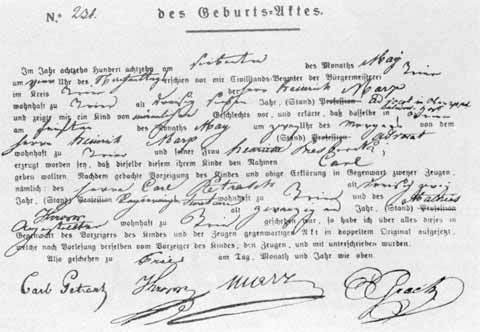 N.º 231.
des Geburts-Aktes.
Im Jahr achtzehn Hundert achtzehn am siebenten des Monaths May
am vier Uhr des Nachmittags erschien vor mir Civilstands-Beamter der Bürgermeisterei
im Kreis Trier der Herr Heinrich Marx
wohnhaft zu Trier alt Jahr, (Stand) Profession
und zeigte mir ein Kind von männlichem Geschlecht vor, und erklärte, daß dasselbe in
am fünften des Monaths May um zwey Uhr des Morgens von dem
Herrn Heinrich Marx Advocat
wohnhaft zu Trier und seiner Frau
erzeugt worden sey, daß dieselbe diesem ihrem Kinde den Nahmen Carl
geben wollten. Nachdem gedachte Vorzeigung des Kindes und obige Erklärung in Gegenwart zweyer Zeugen,
nämlich: des Herrn Carl Petrasch alt zwey
Jahr, (Stand) Profession wohnhaft zu Trier und des Mathias
alt Jahr, (Stand) Profession
wohnhaft zu Trier geschehen war; so habe ich über alles dieses in
Gegenwart des Vorzeigers des Kindes und der Zeugen gegenwärtigen Akt in doppeltem Original aufgesetzt,
welche nach Vorlesung derselben vom Vorzeiger des Kindes, den Zeugen, und mir unterschrieben wurden.
Also geschehen zu Trier am Tag, Monath und Jahr wie oben.
Carl Petrasch Marx